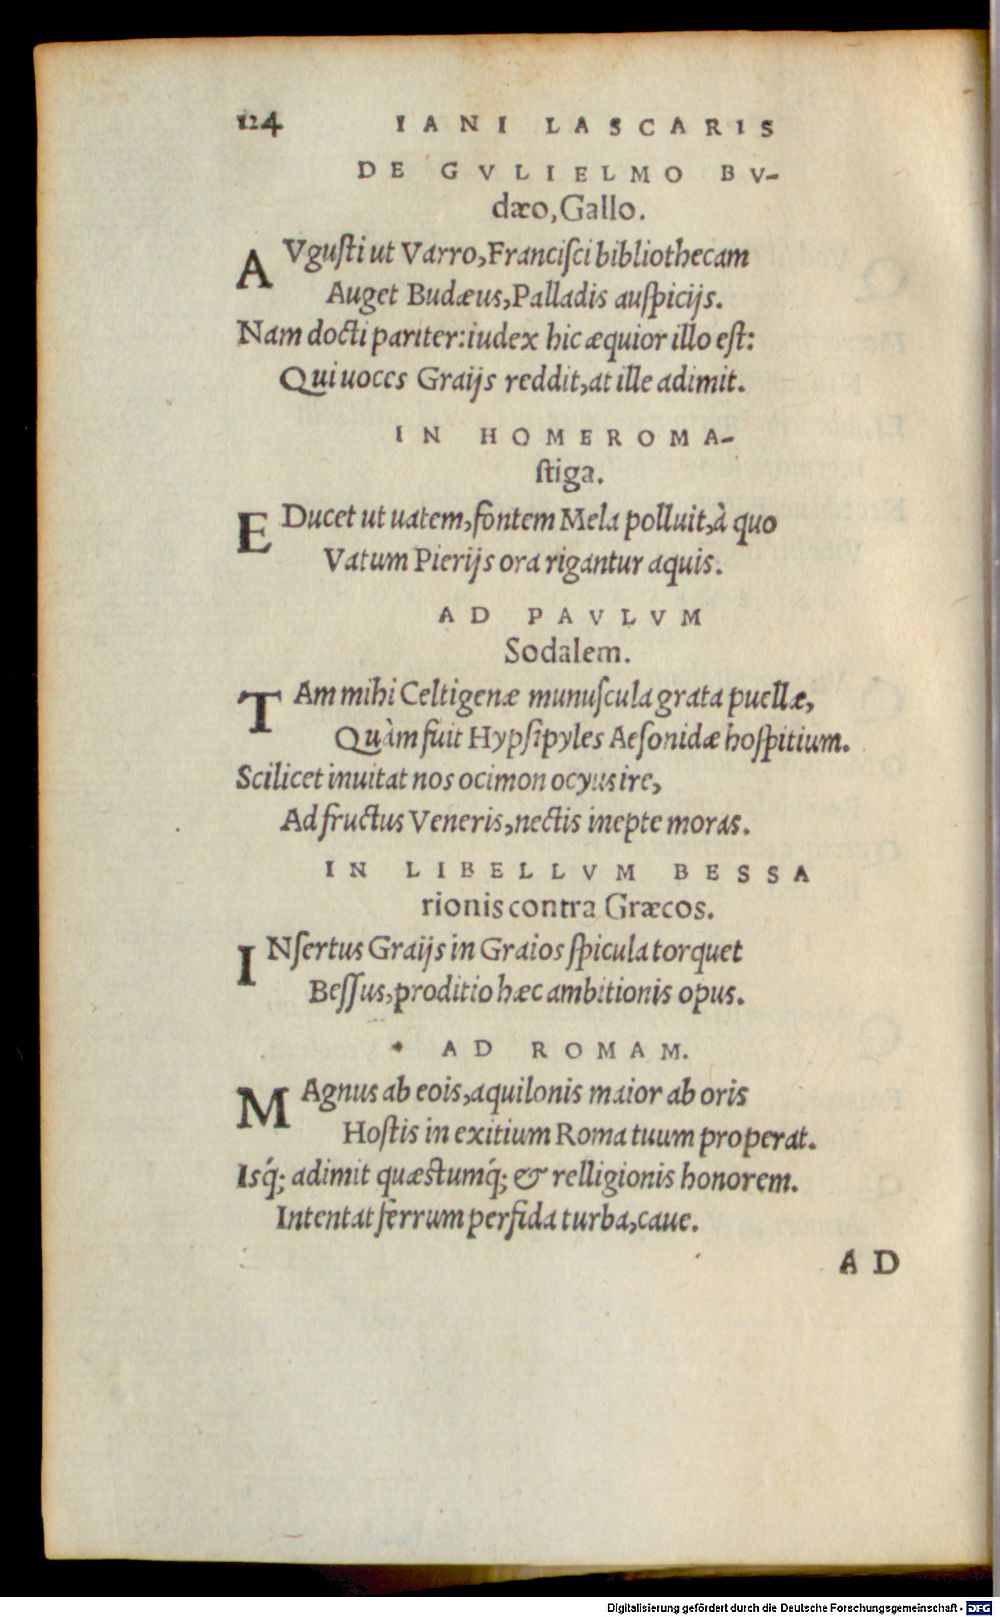 124 IANI LASCARIS
DE GVLIELMO BV-
dæo, Gallo.
AVgusti ut Varro, Francisci bibliothecam
Auget Budæus, Palladis auspicijs.
Nam docti pariter: iudex hic æquior illo est:
Qui uoces Graijs reddit, at ille adimit.
IN HOMEROMA-
stiga.
EDucet ut uatem, fontem Mela polluit, à quo
Vatum Pierijs ora rigantur aquis.
AD PAVLVM
Sodalem.
TAm mihi Celtigenæ munuscula grata puellæ,
Quàm fuit Hypsipyles Aesonidæ hospitium.
Scilicet inuitat nos ocimon ocyus ire,
Ad fructus Veneris, nectis inepte moras.
IN LIBELLVM BESSA
rionis contra Græcos.
INsertus Graijs in Graios spicula torquet
Bessus, proditio hæc ambitionis opus.
AD ROMAM.
MAgnus ab eois, aquilonis maior ab oris
Hostis in exitium Roma tuum properat.
Isq́; adimit quæstumq́; & relligionis honorem.
Intentat ferrum perfida turba, caue.
AD
Digitalisierung gefördert durch die Deutsche Forschungsgemeinschaft - DFG